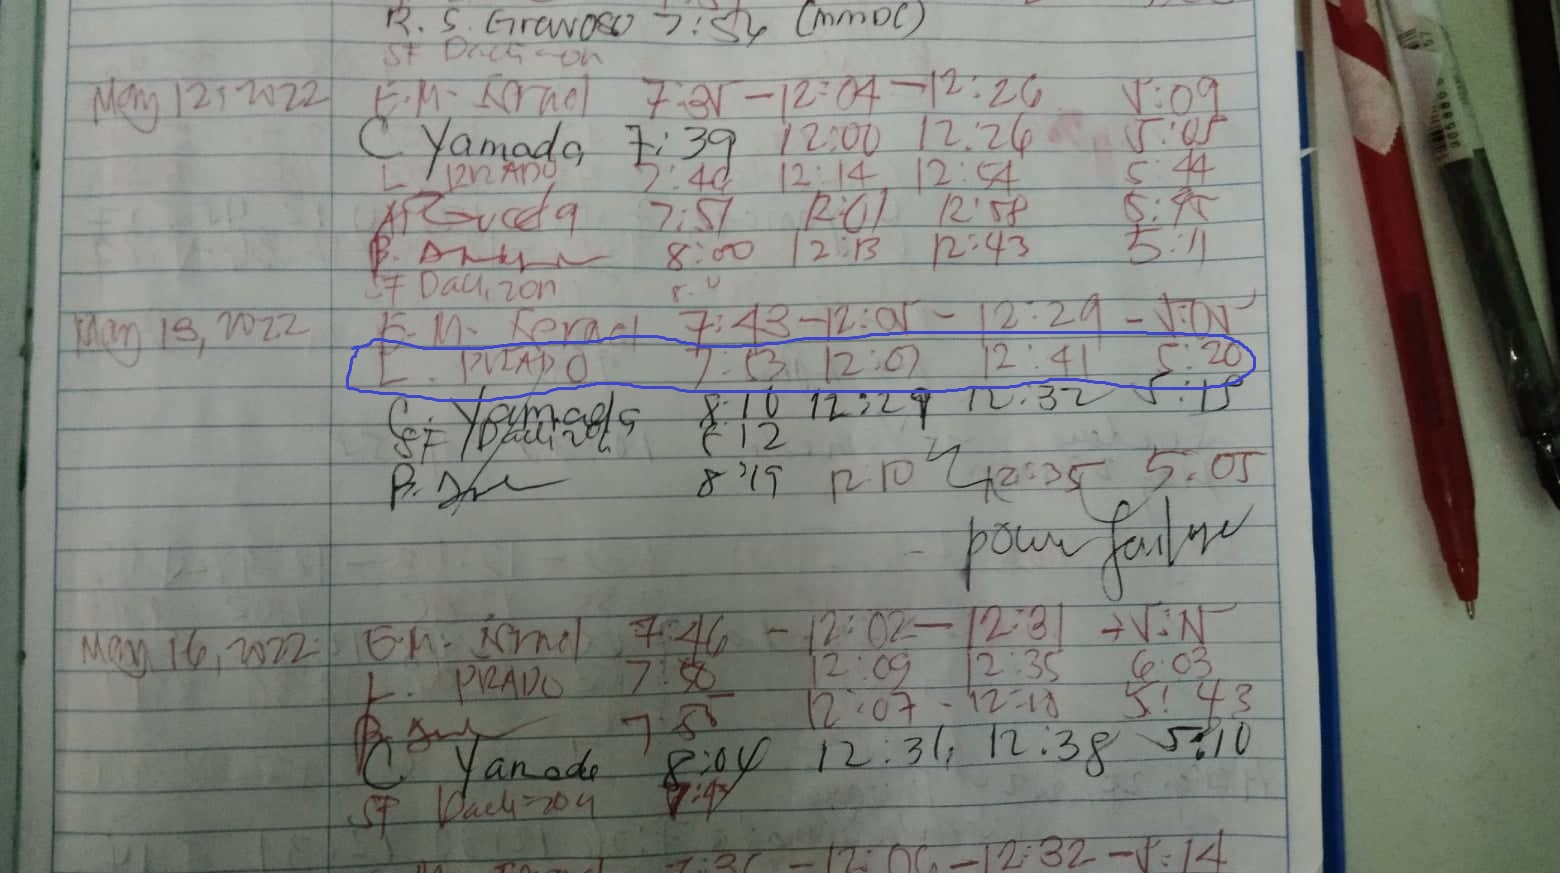 R. S. Gravoso 7:54 (MMDC)
SF Dauizon
May 12, 2022 E.M. Kernel 7:35 - 12:04 - 12:26 5:09
C Yamada 7:39 12:00 12:26 5:05
L. PRADO 7:40 12:14 12:54 5:44
7:51 12:01 12:58 5:45
B. 8:00 12:13 12:43 5:11
SF Dauizon
May 13, 2022 E.M. Kernel 7:43 - 12:05 - 12:29 - 5:05
L. PRADO 7:53 12:07 12:41 5:20
C. Yamada 8:10 12:29 12:32 5:15
SF Dauizon 12
B. 8:19 12:10 12:35 5:05
power failure
May 16, 2022 E.M. Kernel 7:46 - 12:02 - 12:31
L. PRADO 7:50 12:09 12:35 6:03
B. 7:55 12:07 - 12:18 5:43
C Yamada 8:04 12:31 12:38 5:10
SF Dauizon
12:06 - 12:32 - 5:14